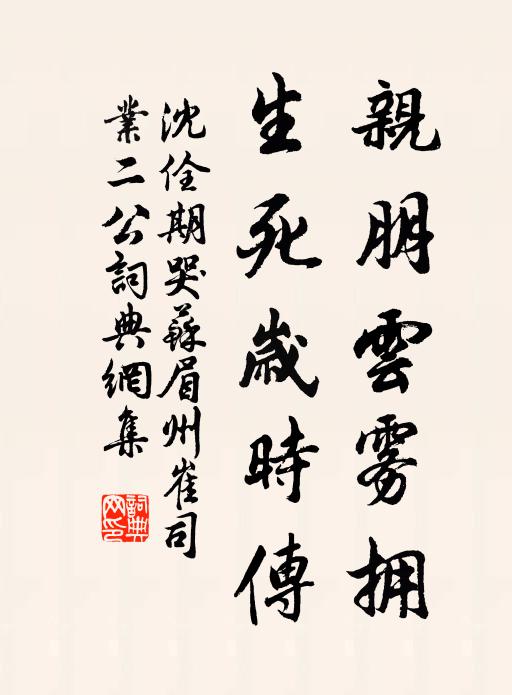 親朋雲雾拥
生死歲時傳
沈佺期哭蘇眉州崔司
業二公詞典網集
詞典
网印